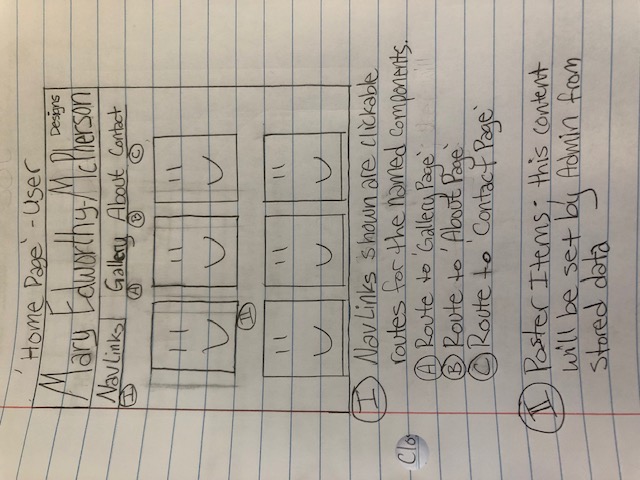 'Home Page' - User
Mary Edworthy-McPherson Designs
NavLinks Gallery About Contact
I A B C
II
I NavLinks shown are clickable
routes for the named components.
A Route to 'Gallery Page'
B Route to 'About Page'
C Route to 'Contact Page'
II Poster Items; this content
will be set by Admin from
stored data